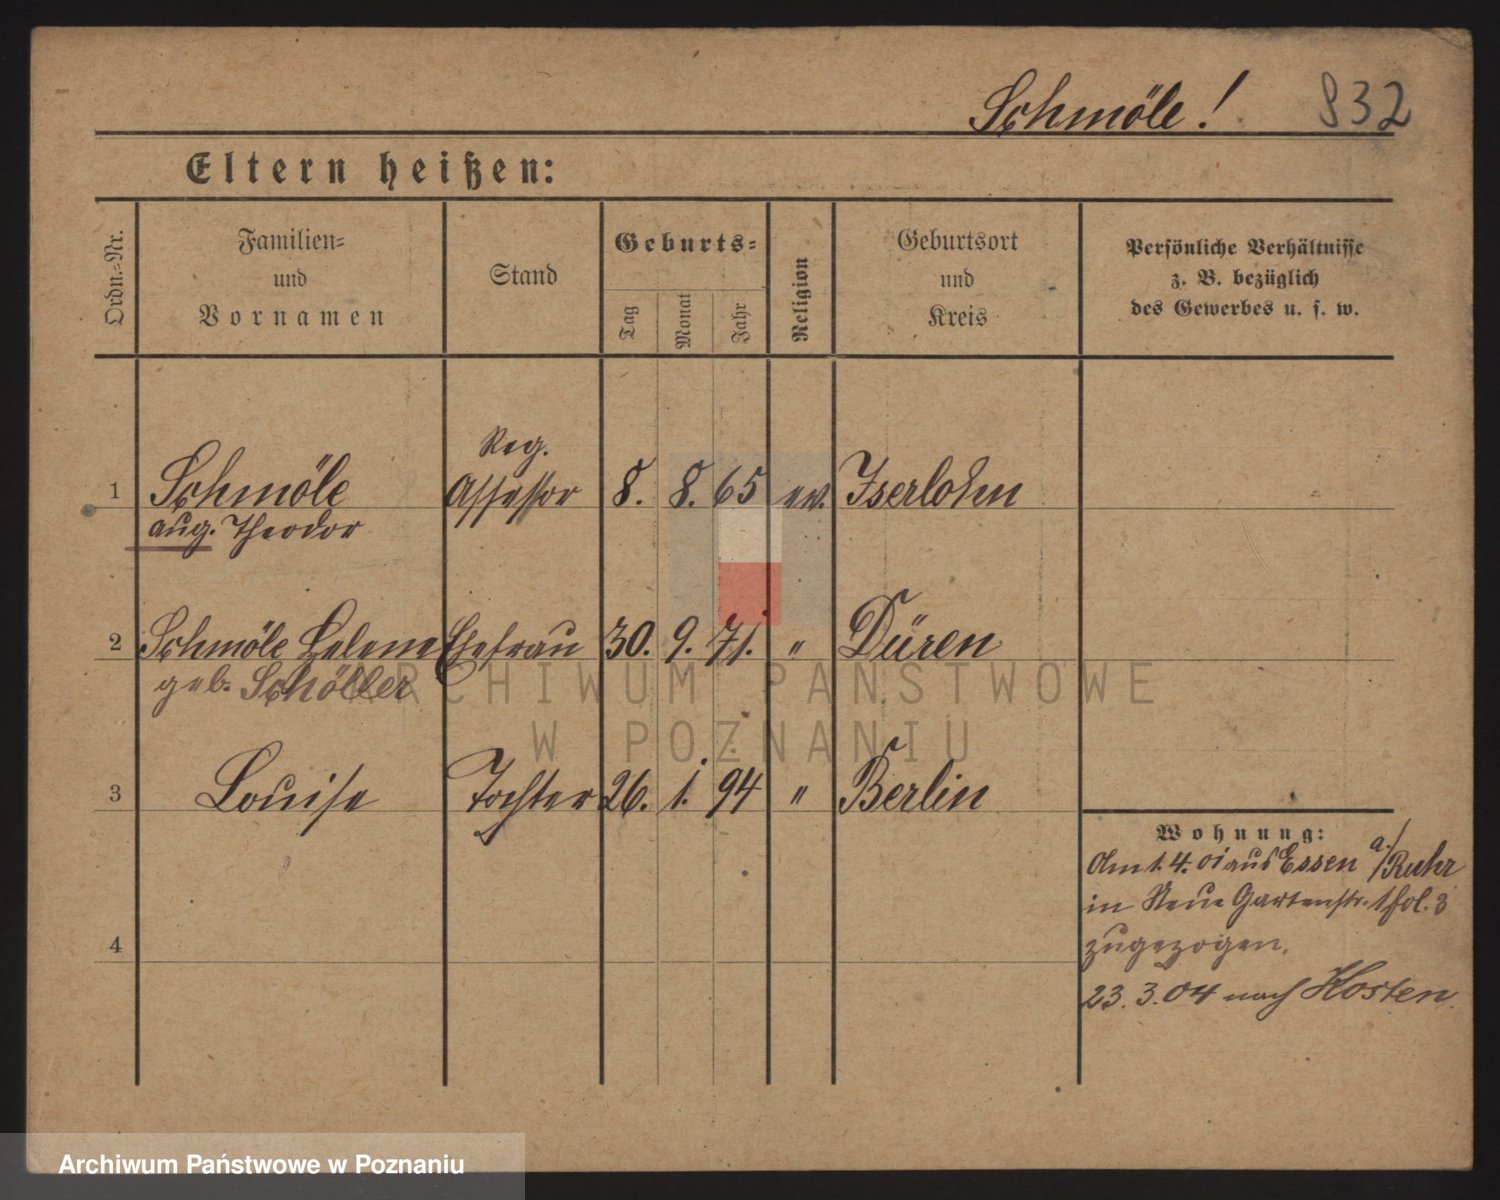 Schmöle! 832
Eltern heißen:
Ordn.-Nr.
Familien-
und
Vornamen
Stand
Geburts-
Tag
Monat
Jahr
Religion
Geburtsort
und
Kreis
Persönliche Verhältnisse
z. B. bezüglich
des Gewerbes u. s. w.
Reg.
1 Schmöle Assessor 8. 8. 65 ev. Iserlohn
aug. Theodor
2 Schmöle Helene Ehefrau 30. 9. 71. " Düren
geb. Schöller
3 Louise Tochter 26. 1. 94 " Berlin
4
Wohnung:
Am 1. 4. 01 aus Essen a./Ruhr
in Neue Gartenstr. 3
zugezogen.
23. 3. 04 nach Kosten.
ARCHIWUM PAŃSTWOWE
W POZNANIU
Archiwum Państwowe w Poznaniu